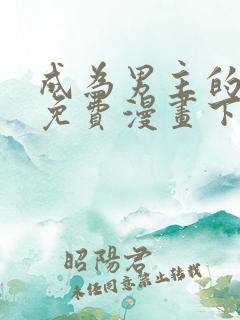 成為男主的
免費漫畫下
昭陽君
未经同意禁止转载